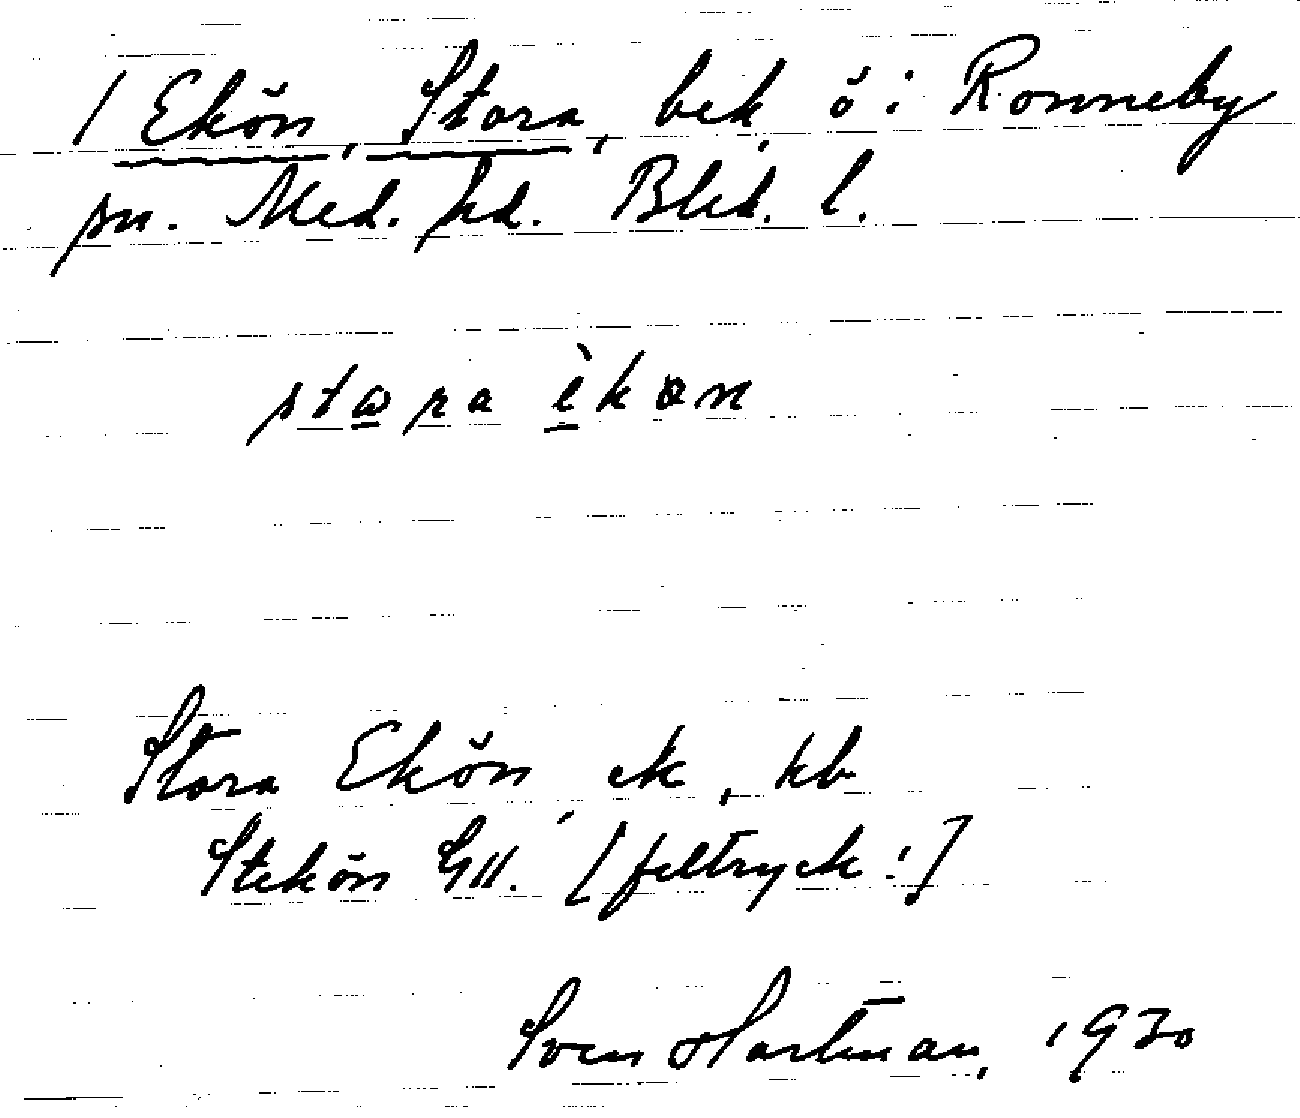 / Ekön, Stora, bek. ö i Ronneby
sn. Med. hd. Blek. l.
stɷra èkøn
Stora Ekön, ek, kb
Stekön GII. [feltryck!]
Sven Hartman, 1930